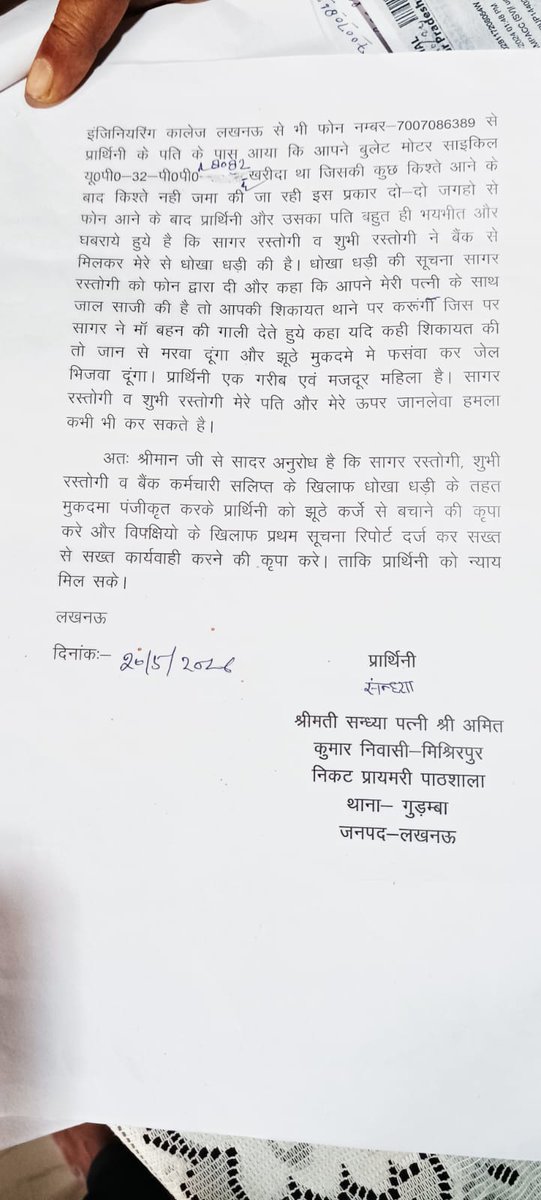 इंजिनियरिंग कालेज लखनऊ से भी फोन नम्बर–7007086389 से
प्रार्थिनी के पति के पास आया कि आपने बुलेट मोटर साइकिल
यू0पी0–32–पी0पी0 8082 खरीदा था जिसकी कुछ किश्ते आने के
बाद किश्ते नही जमा की जा रही इस प्रकार दो–दो जगहो से
फोन आने के बाद प्रार्थिनी और उसका पति बहुत ही भयभीत और
घबराये हुये है कि सागर रस्तोगी व शुभी रस्तोगी ने बैंक से
मिलकर मेरे से धोखा धड़ी की है। धोखा धड़ी की सूचना सागर
रस्तोगी को फोन द्वारा दी और कहा कि आपने मेरी पत्नी के साथ
जाल साजी की है तो आपकी शिकायत थाने पर करूंगा जिस पर
सागर ने मॉ बहन की गाली देते हुये कहा यदि कही शिकायत की
तो जान से मरवा दूंगा और झूठे मुकदमे मे फसंवा कर जेल
भिजवा दूंगा। प्रार्थिनी एक गरीब एवं मजदूर महिला है। सागर
रस्तोगी व शुभी रस्तोगी मेरे पति और मेरे ऊपर जानलेवा हमला
कभी भी कर सकते है।
अतः श्रीमान जी से सादर अनुरोध है कि सागर रस्तोगी, शुभी
रस्तोगी व बैंक कर्मचारी सलिप्त के खिलाफ धोखा धड़ी के तहत
मुकदमा पंजीकृत करके प्रार्थिनी को झूठे कर्जे से बचाने की कृपा
करे और विपक्षियो के खिलाफ प्रथम सूचना रिपोर्ट दर्ज कर सख्त
से सख्त कार्यवाही करने की कृपा करे। ताकि प्रार्थिनी को न्याय
मिल सके।
लखनऊ
दिनांकः– 26/5/2026
प्रार्थिनी
संन्ध्या
श्रीमती सन्ध्या पत्नी श्री अमित
कुमार निवासी–मिश्रिरपुर
निकट प्रायमरी पाठशाला
थाना– गुड़म्बा
जनपद–लखनऊ